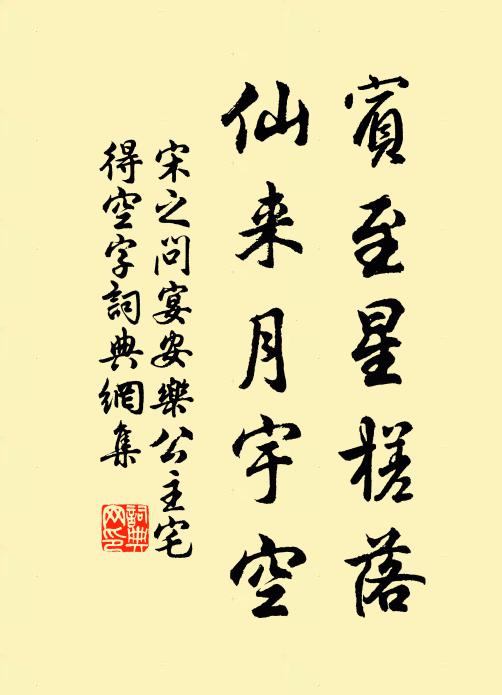 賓至星槎落
仙来月宇空
宋之问宴安樂公主宅
得空字詞典網集
詞典
网印